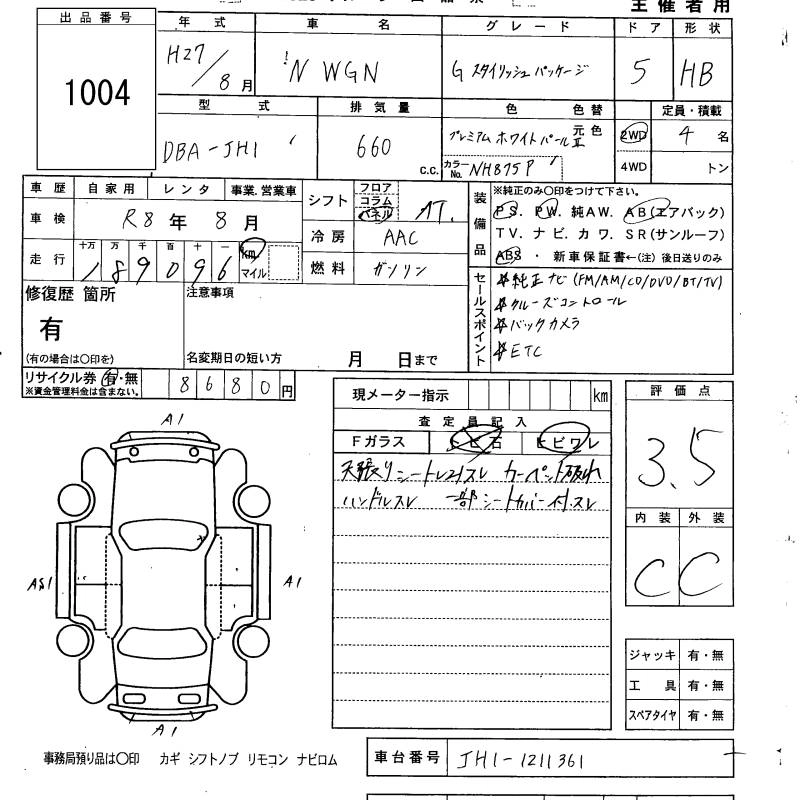 主催者用
出品番号
1004
年式 車名 グレード ドア 形状
H27/8月 N WGN G スタイリッシュパッケージ 5 HB
型式 排気量 色 色替 定員・積載
DBA-JH1 660 C.C. プレミアムホワイトパール 元色 2WD 4名
カラーNo. NH875P 4WD トン
車歴 自家用 レンタ 事業.営業車
車検 R8年 8月
走行 十万 万 千 百 十 一
189096 km マイル
シフト フロア コラム パネル AT.
冷房 AAC
燃料 ガソリン
装備品
※純正のみ〇印をつけて下さい。
PS. PW. 純AW. AB(エアバック)
TV. ナビ. カワ. SR(サンルーフ)
ABS ・ 新車保証書←(注) 後日送りのみ
セールスポイント
純正ナビ(FM/AM/CD/DVD/BT/TV)
クルーズコントロール
バックカメラ
ETC
修復歴 箇所
有
(有の場合は〇印を)
注意事項
名変期日の短い方 月 日まで
リサイクル券 有・無 8680円
※資金管理料金は含まない。
現メーター指示 km
査定員記入
Fガラス ヒビ石 ヒビワレ
天張りシートレスレ カーペット破れ
ハンドルスレ 一部シートカバー付.スレ
評価点
3.5
内装 外装
C C
A1
AS1
A1
A1
ジャッキ 有・無
工具 有・無
スペアタイヤ 有・無
事務局預り品は〇印 カギ シフトノブ リモコン ナビロム
車台番号 JH1-1211361